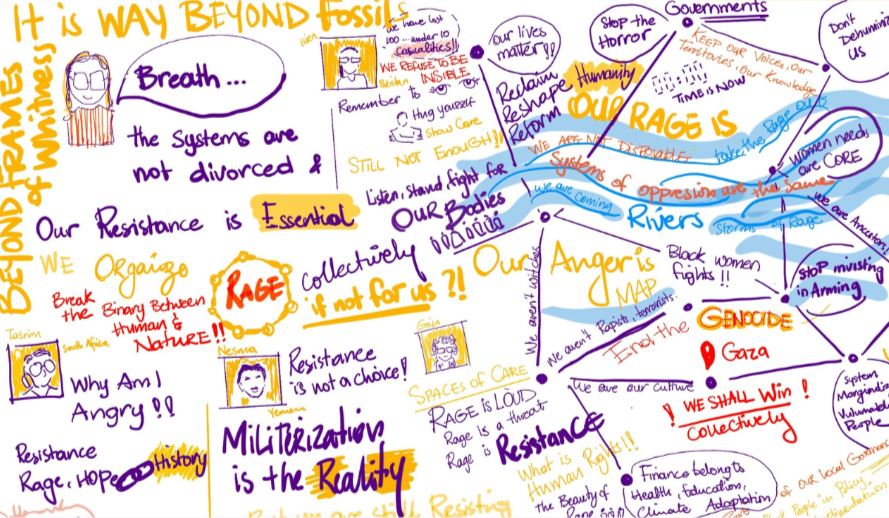 It is WAY BEYOND Fossils
BEYOND FRAMES
of Whitness
Breath ...
the systems are
not divorced &
Our Resistance is Essential
WE Organize
Break
the Binary Between
Human &
NATURE !!
RAGE
Collectively
if not for us ?!
Tasnim
South Africa
Why Am I
Angry !!
Resistance
Rage, HOPE
History
Nesma
Yemen
Resistance
is not a choice!
MiLiTERIZAtion
is the Reality
still Resisting
we have lost
100 ... under 10
casualities!!
WE REFUSE TO BE
INSIBLE
Remember to
Hug yourself
Show Care
STILL NOT Enough!!
Listen, stand, fight for
OUR Bodies
our lives
matter !!
Reclaim
Reshape
Reform
Humanity
OUR RAGE IS
Stop the
Horror
Governments
KEEP our Voices, Our
Territories, Our Knowledge
TIME is NOW
Don't
Dehuminize
US
WE ARE NOT DISPOSABLE
take the Rage out
Women needs
are CORE
Systems of oppression are the same
we are coming
Rivers
Storms of Rage
we are Ancestors!
Our Anger is
MAP
We aren't witches
We aren't Rapists, terrorists.
Black women
fights !!
Stop invisting
in Arming
End the
GENOCIDE
Gaza
we are our culture
! WE SHALL Win !
Collectively
System
Vulnerable
People
SPACES of CARE
RAGE is LOUD
Rage is a threat
Rage is Resistance
What is
Human Rights!!
The Beauty of
Finance belongs to
Health, Education,
Climate Adaptation
of our Local
People in Policy